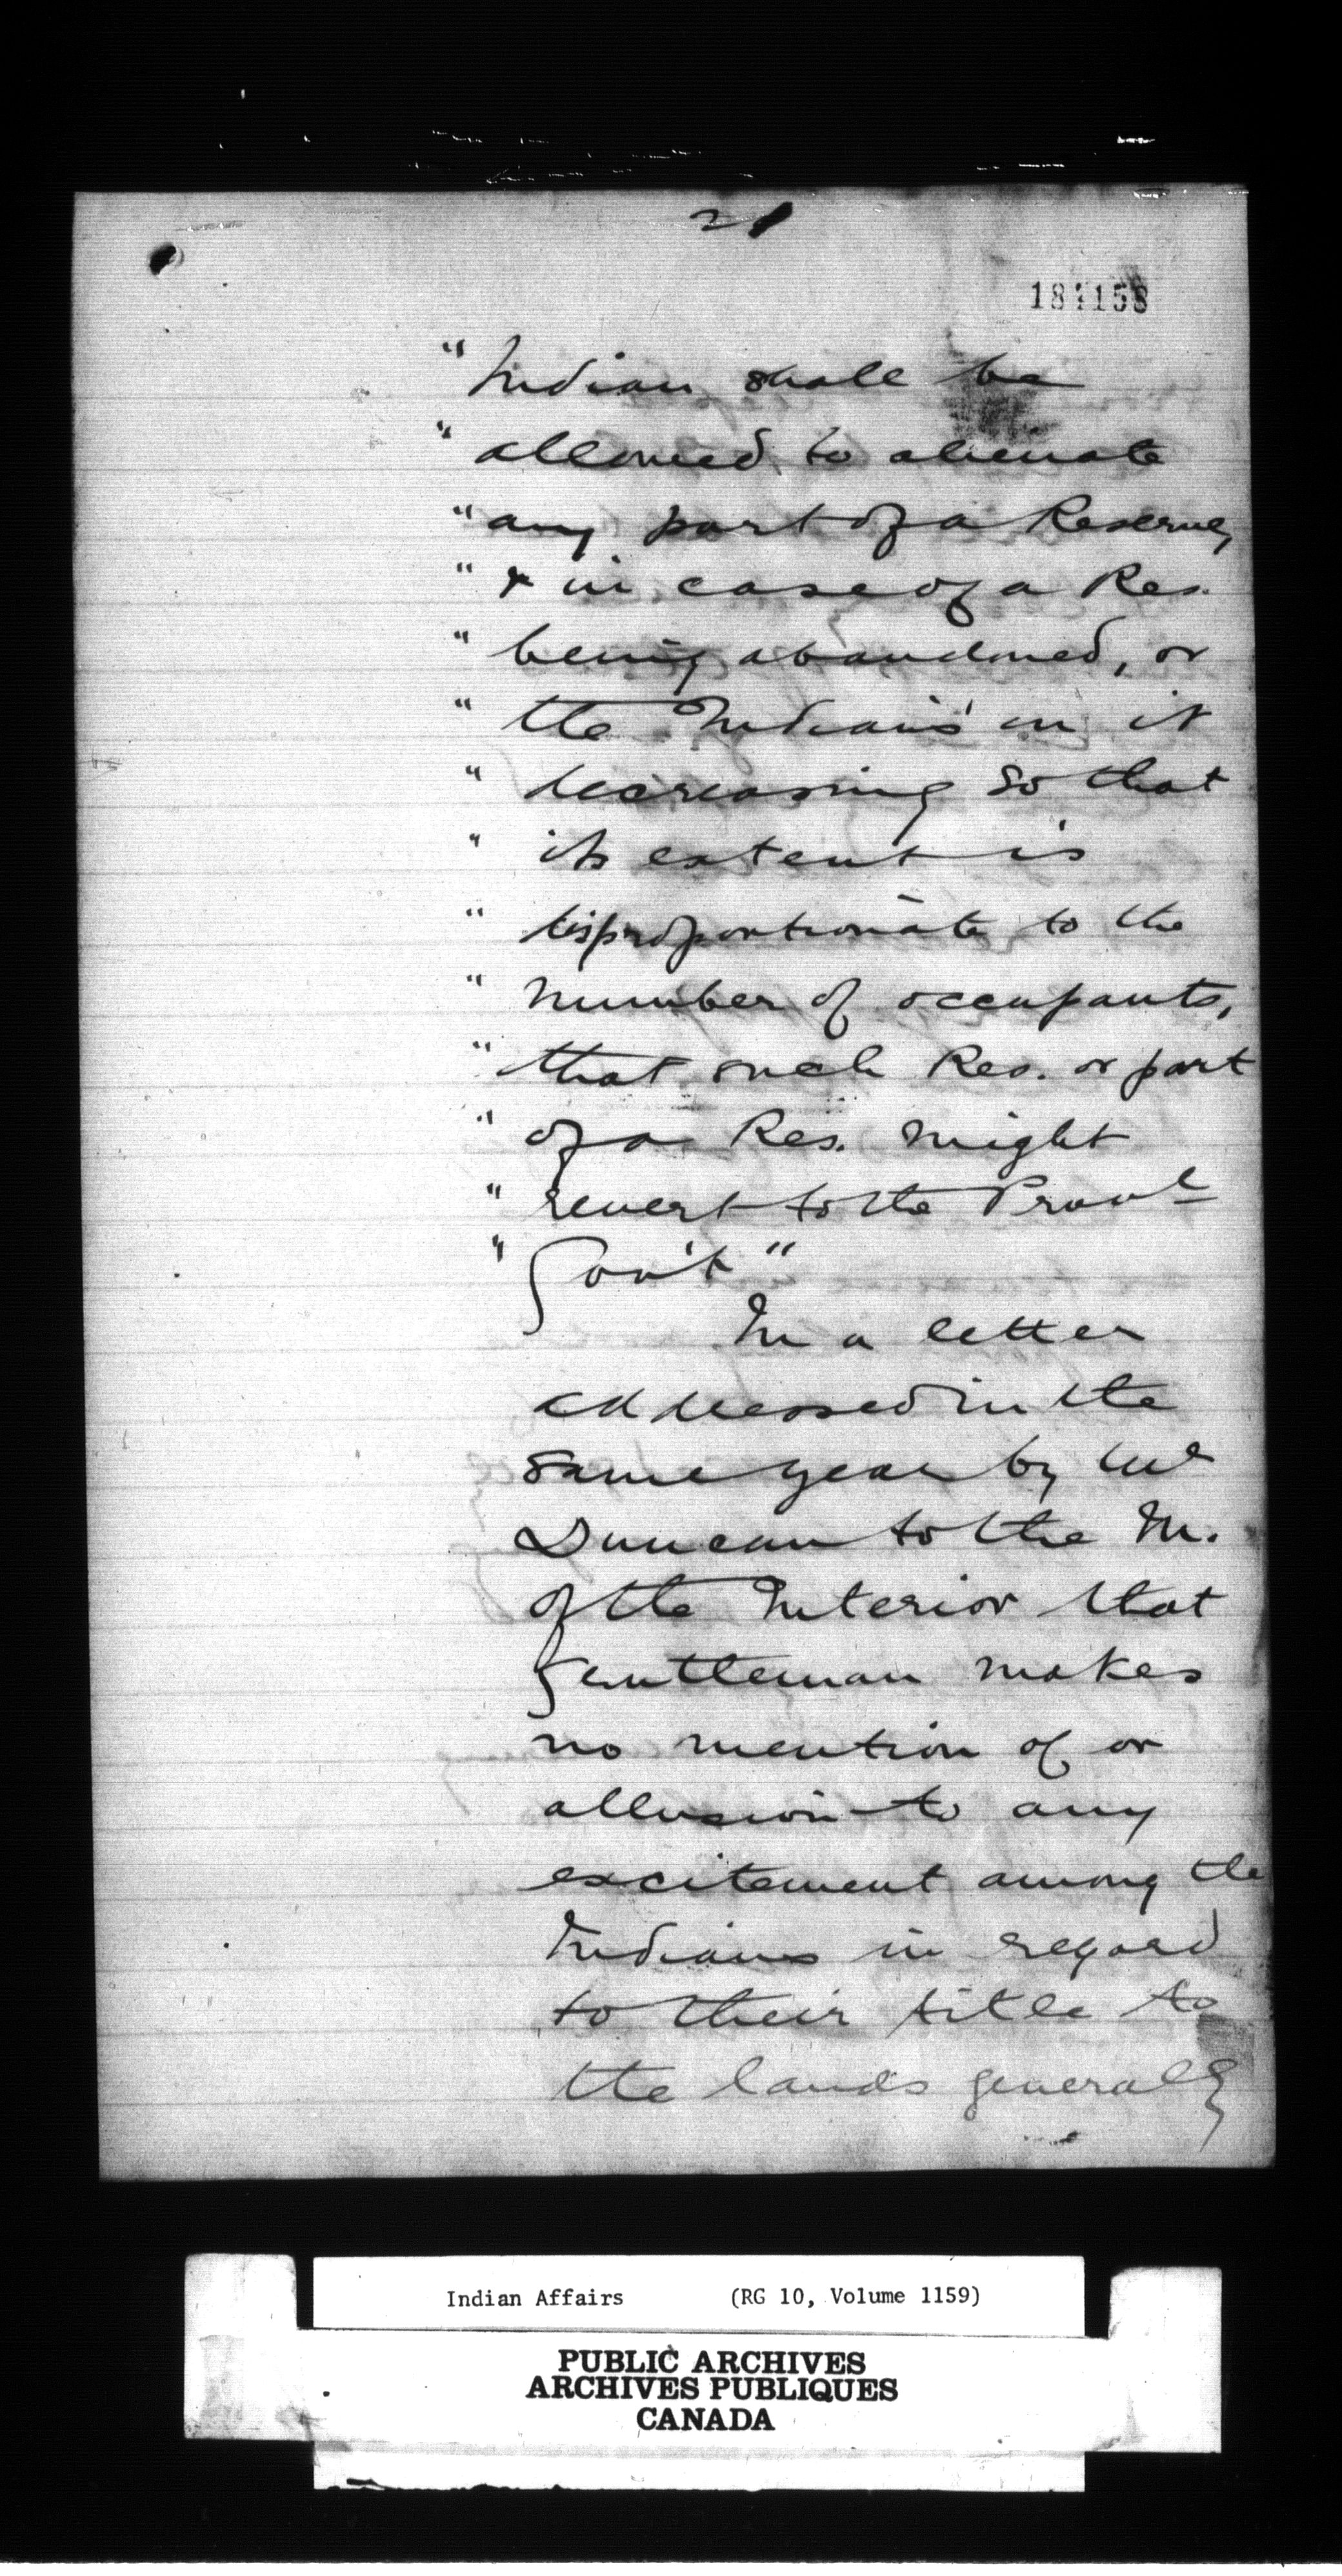 21
184158
" Indian shall be
" allowed to alienate
" any part of a Reserve,
" & in case of a Res.
" being abandoned, or
" the Indians in it
" decreasing so that
" its extent is
" disproportionate to the
" number of occupants,
" that such Res. or part
" of a Res. might
" revert to the Provl
" Gov't "
In a letter
addressed in the
same year by Mr
Duncan to the M.
of the Interior that
gentleman makes
no mention of or
allusion to any
excitement among the
Indians in regard
to their title to
the lands generally
Indian Affairs (RG 10, Volume 1159)
PUBLIC ARCHIVES
ARCHIVES PUBLIQUES
CANADA